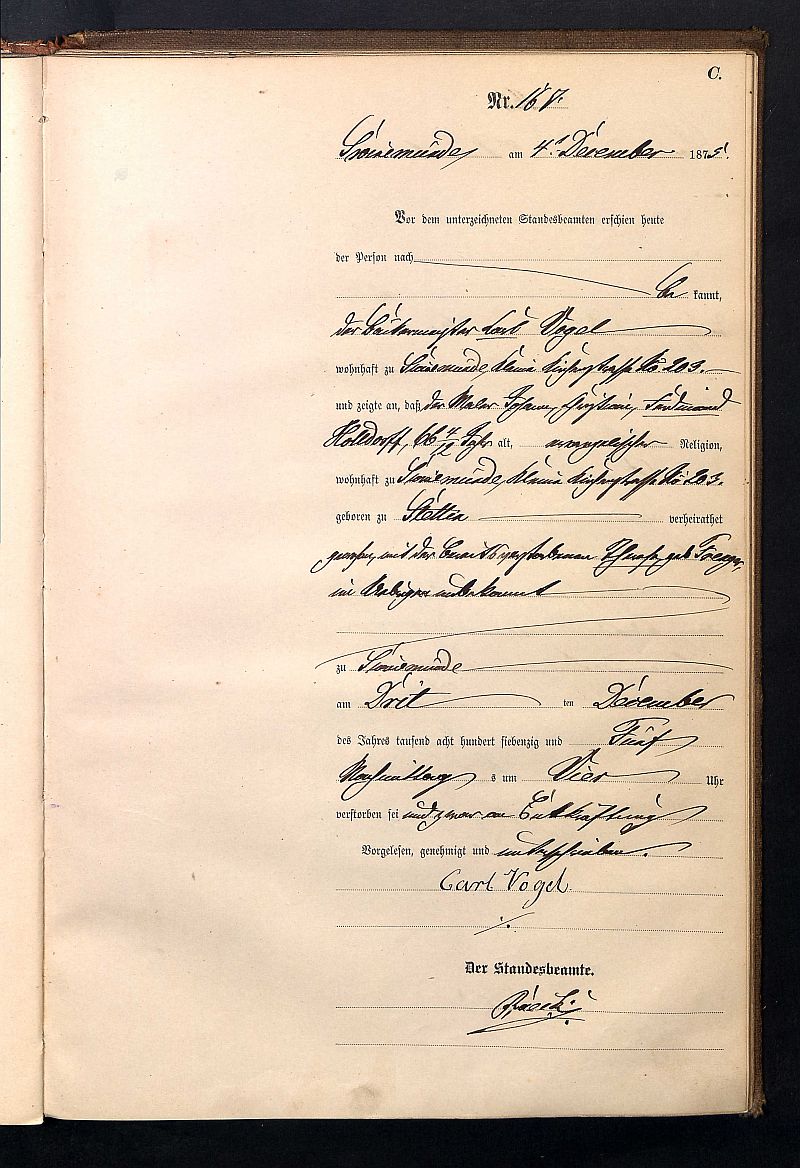 C.
Nr. 167.
Swinemünde, am 4t December 1875.
Vor dem unterzeichneten Standesbeamten erschien heute
der Person nach
be kannt,
der Bäckermeister Carl Vogel
wohnhaft zu Swinemünde, kleine Kirchenstrasse No 203.
und zeigte an, daß der Maler Johann, Christian, Ferdinand
Holldorff, 66 Jahr alt, evangelischer Religion,
wohnhaft zu Swinemünde, kleine Kirchenstrasse No 203.
geboren zu Stettin verheirathet
gewesen, mit der bereits verstorbenen geb.
im Uebrigen unbekannt
zu Swinemünde
am Drit ten December
des Jahres tausend acht hundert siebenzig und Fünf
Nachmittag s um Vier Uhr
verstorben sei und zwar an Entkräftung
Vorgelesen, genehmigt und unterschrieben.
Carl Vogel
Der Standesbeamte.